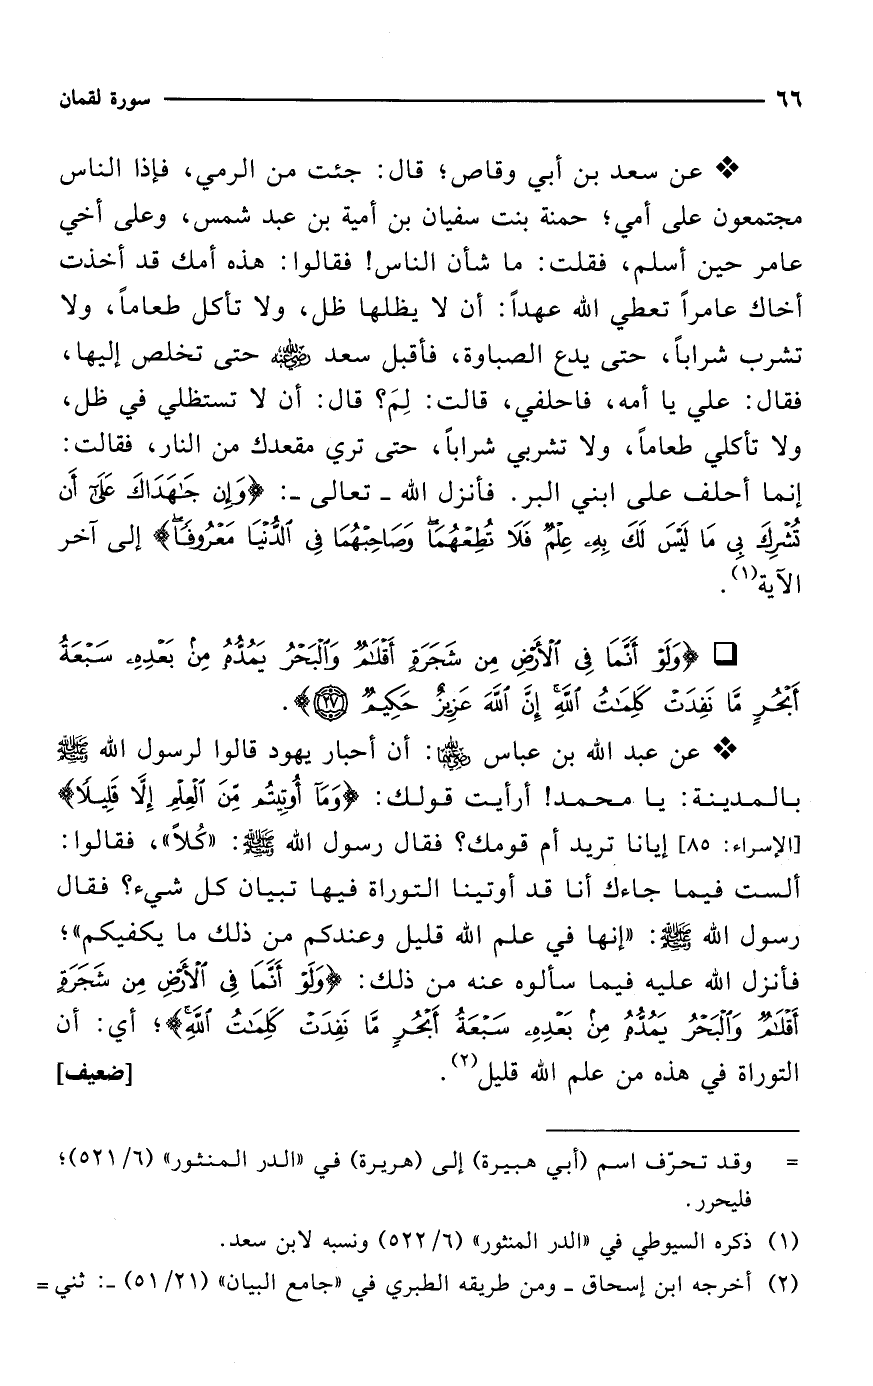 ٦٦ سورة لقمان
❖ عن سعد بن أبي وقاص؛ قال: جئت من الرمي، فإذا الناس
مجتمعون على أمي؛ حمنة بنت سفيان بن أمية بن عبد شمس، وعلى أخي
عامر حين أسلم، فقلت: ما شأن الناس! فقالوا: هذه أمك قد أخذت
أخاك عامراً تعطي الله عهداً: أن لا يظلها ظل، ولا تأكل طعاماً، ولا
تشرب شراباً، حتى يدع الصباوة، فأقبل سعد رضي الله عنه حتى تخلص إليها،
فقال: علي يا أمه، فاحلفي، قالت: لِمَ؟ قال: أن لا تستظلي في ظل،
ولا تأكلي طعاماً، ولا تشربي شراباً، حتى تري مقعدك من النار، فقالت:
إنما أحلف على ابني البر. فأنزل الله ـ تعالى ـ: ﴿وَإِن جَٰهَدَاكَ عَلَىٰٓ أَن
تُشْرِكَ بِى مَا لَيْسَ لَكَ بِهِۦ عِلْمٌ فَلَا تُطِعْهُمَا ۖ وَصَاحِبْهُمَا فِى ٱلدُّنْيَا مَعْرُوفًا ۖ﴾ إلى آخر
الآية(١).
❑ ﴿وَلَوْ أَنَّمَا فِى ٱلْأَرْضِ مِن شَجَرَةٍ أَقْلَٰمٌ وَٱلْبَحْرُ يَمُدُّهُۥ مِنۢ بَعْدِهِۦ سَبْعَةُ
أَبْحُرٍ مَّا نَفِدَتْ كَلِمَٰتُ ٱللَّهِ ۗ إِنَّ ٱللَّهَ عَزِيزٌ حَكِيمٌ ﴿٢٧﴾﴾.
❖ عن عبد الله بن عباس رضي الله عنهما: أن أحبار يهود قالوا لرسول الله ﷺ
بالمدينة: يا محمد! أرأيت قولك: ﴿وَمَآ أُوتِيتُم مِّنَ ٱلْعِلْمِ إِلَّا قَلِيلًا﴾
[الإسراء: ٨٥] إيانا تريد أم قومك؟ فقال رسول الله ﷺ: «كُلاًّ»، فقالوا:
ألست فيما جاءك أنا قد أوتينا التوراة فيها تبيان كل شيء؟ فقال
رسول الله ﷺ: «إنها في علم الله قليل وعندكم من ذلك ما يكفيكم»؛
فأنزل الله عليه فيما سألوه عنه من ذلك: ﴿وَلَوْ أَنَّمَا فِى ٱلْأَرْضِ مِن شَجَرَةٍ
أَقْلَٰمٌ وَٱلْبَحْرُ يَمُدُّهُۥ مِنۢ بَعْدِهِۦ سَبْعَةُ أَبْحُرٍ مَّا نَفِدَتْ كَلِمَٰتُ ٱللَّهِ ۗ﴾؛ أي: أن
التوراة في هذه من علم الله قليل(٢). [ضعيف]
= وقد تحرّف اسم (أبي هبيرة) إلى (هريرة) في «الدر المنثور» (٦/ ٥٢١)؛
فليحرر.
(١) ذكره السيوطي في «الدر المنثور» (٦/ ٥٢٢) ونسبه لابن سعد.
(٢) أخرجه ابن إسحاق ـ ومن طريقه الطبري في «جامع البيان» (٢١/ ٥١) ـ: ثني =